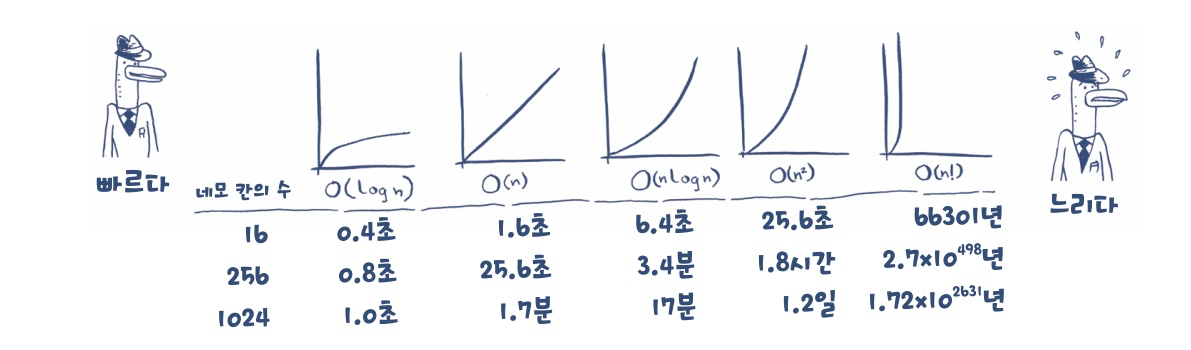 빠르다
네모 칸의 수 O(log n) O(n) O(n log n) O(n²) O(n!)
느리다
16 0.4초 1.6초 6.4초 25.6초 66301년
256 0.8초 25.6초 3.4분 1.8시간 2.7×10⁴⁹⁸년
1024 1.0초 1.7분 17분 1.2일 1.72×10²⁶³¹년